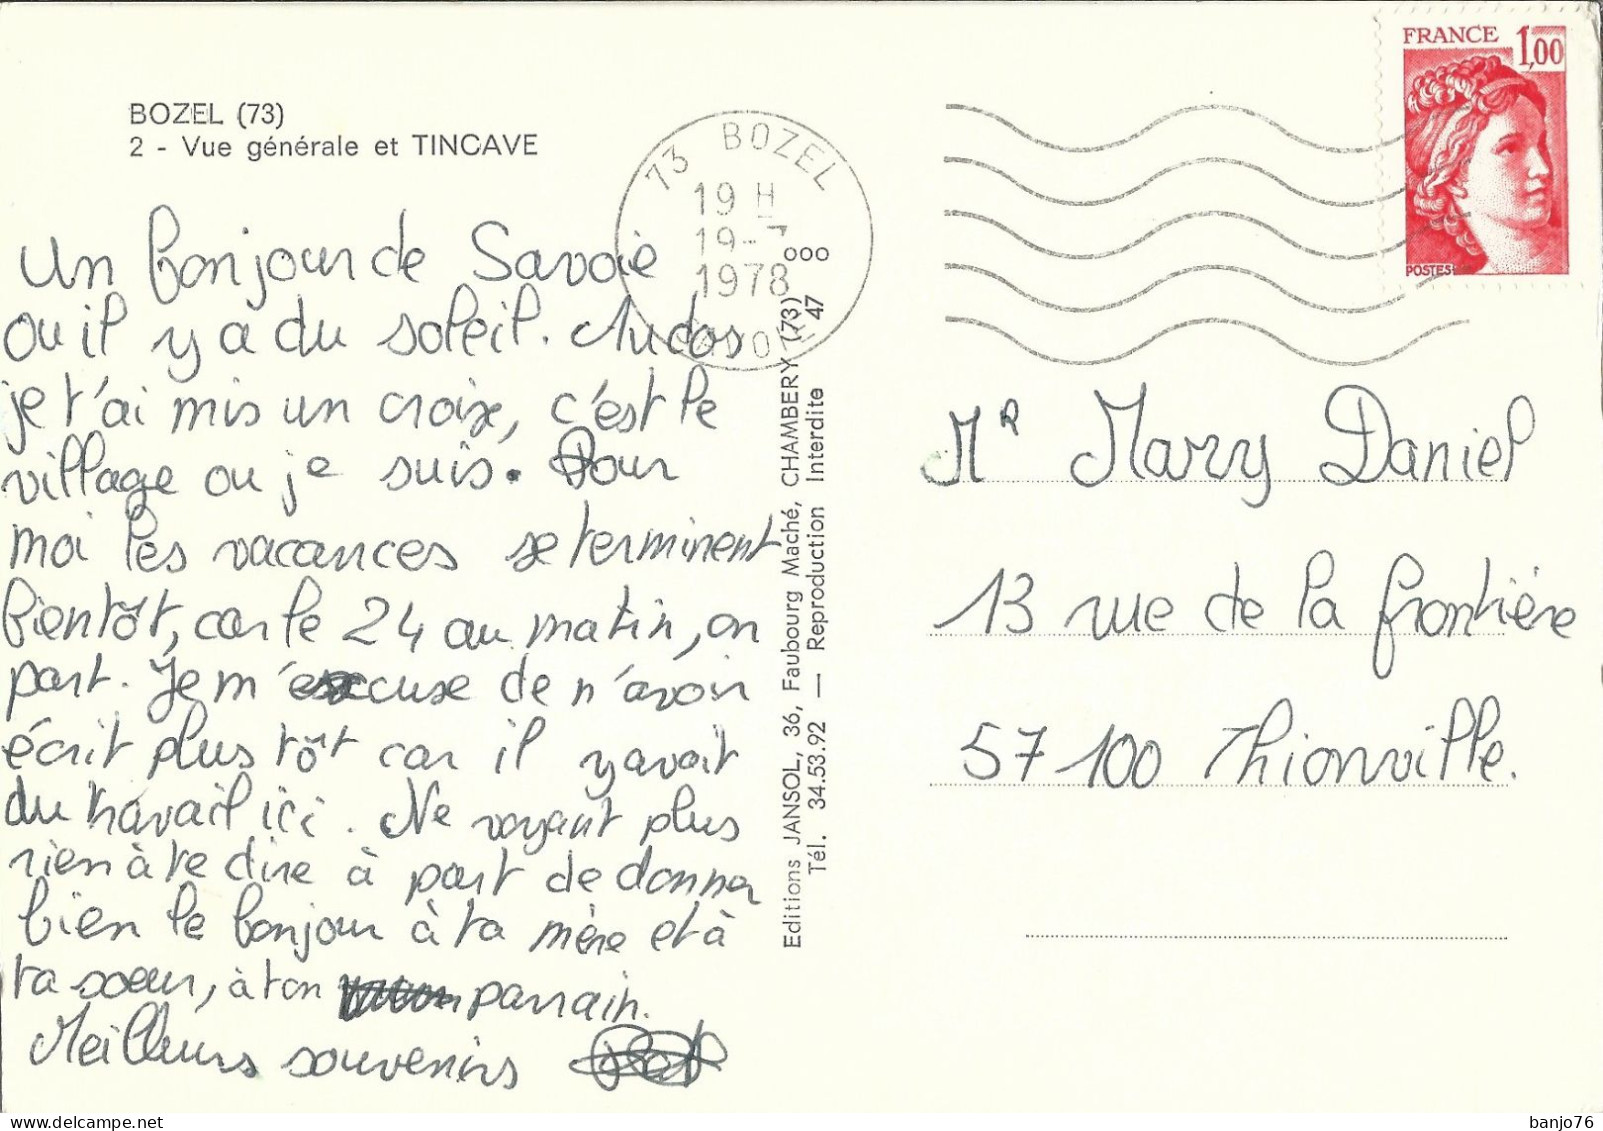 BOZEL (73)
2 - Vue générale et TINCAVE
73 BOZEL
19 H
19-7
1978
SAVOIE
FRANCE 1,00
POSTES
Un bonjour de Savoie
ou il y a du soleil. Au dos
je t'ai mis un croix, c'est le
village ou je suis. Pour
moi les vacances se terminent
bientôt, car le 24 au matin, on
part. Je m'excuse de n'avoir
écrit plus tôt car il y avait
du travail ici. Ne voyant plus
rien à te dire à part de donner
bien le bonjour à ta mère et à
ta sœur, à ton parrain.
Meilleurs souvenirs
Editions JANSOL, 36, Faubourg Maché, CHAMBERY (73)
Tél. 34.53.92 — Reproduction Interdite 47
000
Mr Mary Daniel
13 rue de la frontière
57100 Thionville.
banjo76